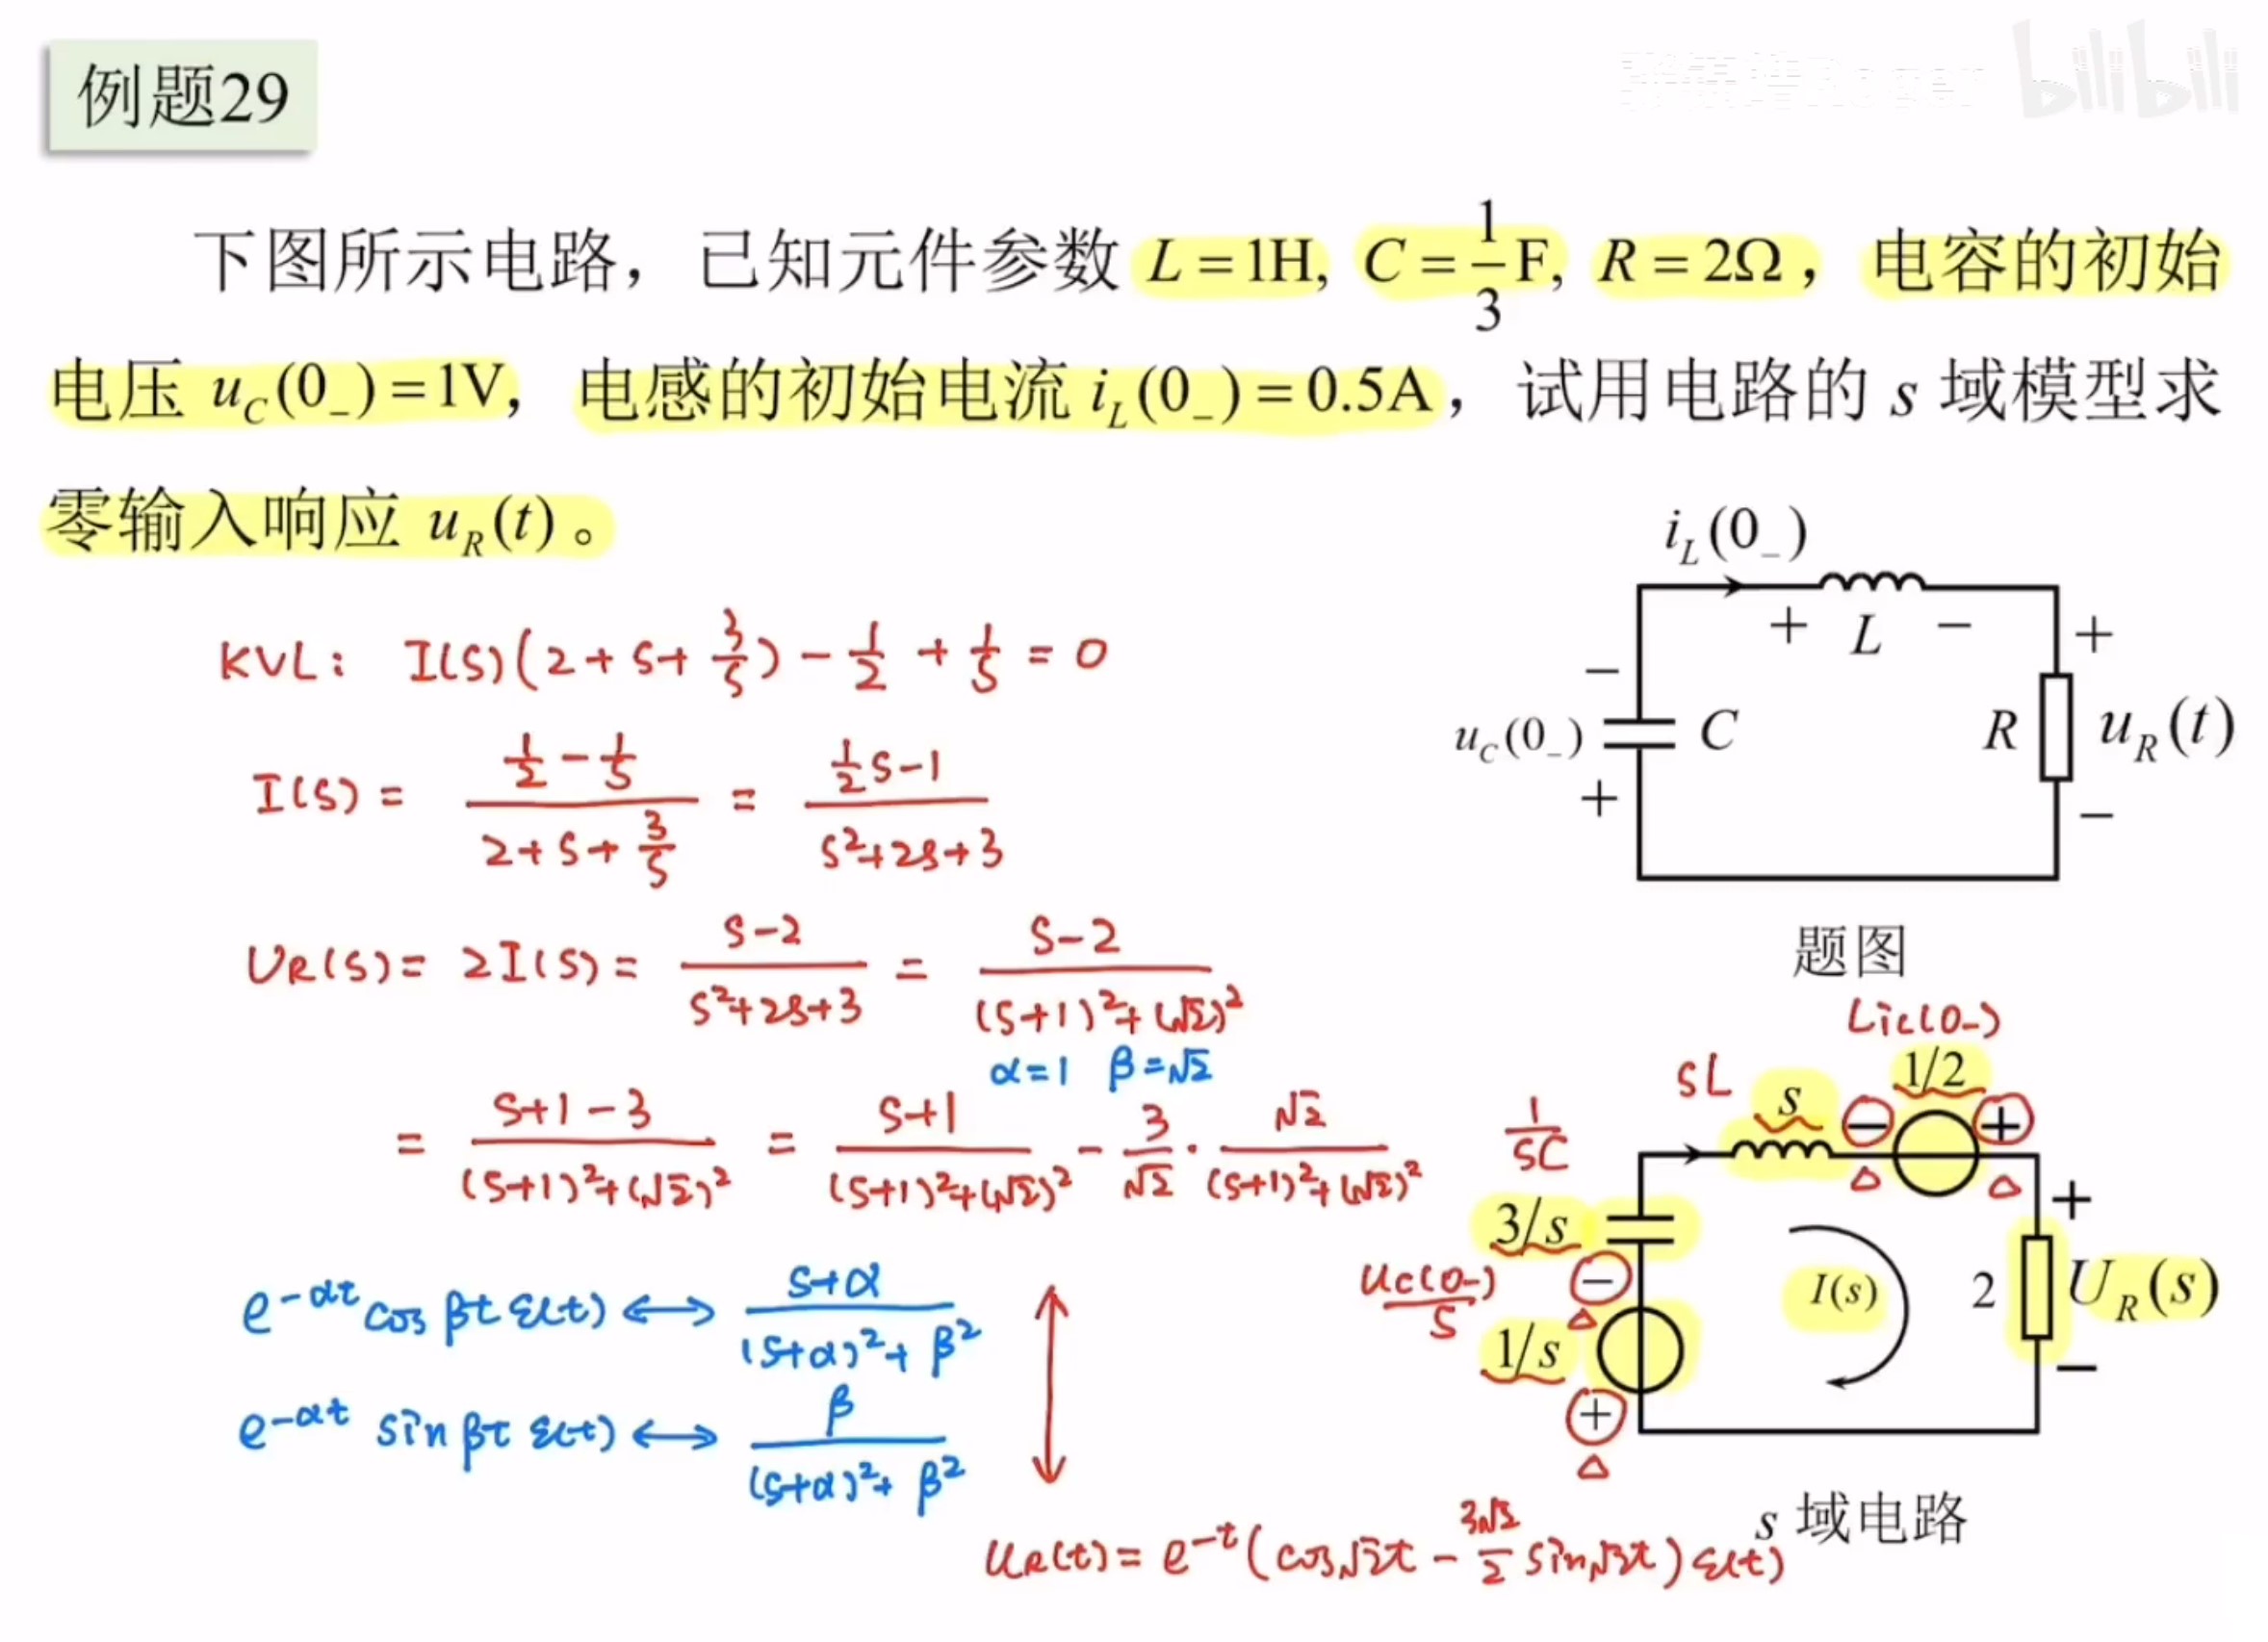 例题29
bilibili
下图所示电路，已知元件参数 L=1H, C=1/3F, R=2Ω，电容的初始
电压 u_C(0_-)=1V，电感的初始电流 i_L(0_-)=0.5A，试用电路的 s 域模型求
零输入响应 u_R(t)。
i_L(0_-)
+ L −
− +
u_C(0_-) C R u_R(t)
+ −
题图
KVL: I(S)(2+S+3/S) − 1/2 + 1/S = 0
I(S) = (1/2 − 1/S)/(2+S+3/S) = (1/2 S−1)/(S²+2S+3)
U_R(S) = 2I(S) = (S−2)/(S²+2S+3) = (S−2)/((S+1)²+(√2)²)
α=1 β=√2
= (S+1−3)/((S+1)²+(√2)²) = (S+1)/((S+1)²+(√2)²) − 3/√2 · √2/((S+1)²+(√2)²)
e^{-αt} cos βt ε(t) ↔ (S+α)/((S+α)²+β²)
e^{-αt} sin βt ε(t) ↔ β/((S+α)²+β²)
u_R(t) = e^{-t}(cos√2t − 3√2/2 sin√2t)ε(t)
Li_L(0-)
SL s − 1/2 +
1/SC
3/s +
u_C(0-)/S − I(s) 2 U_R(s)
1/s −
+
s 域电路